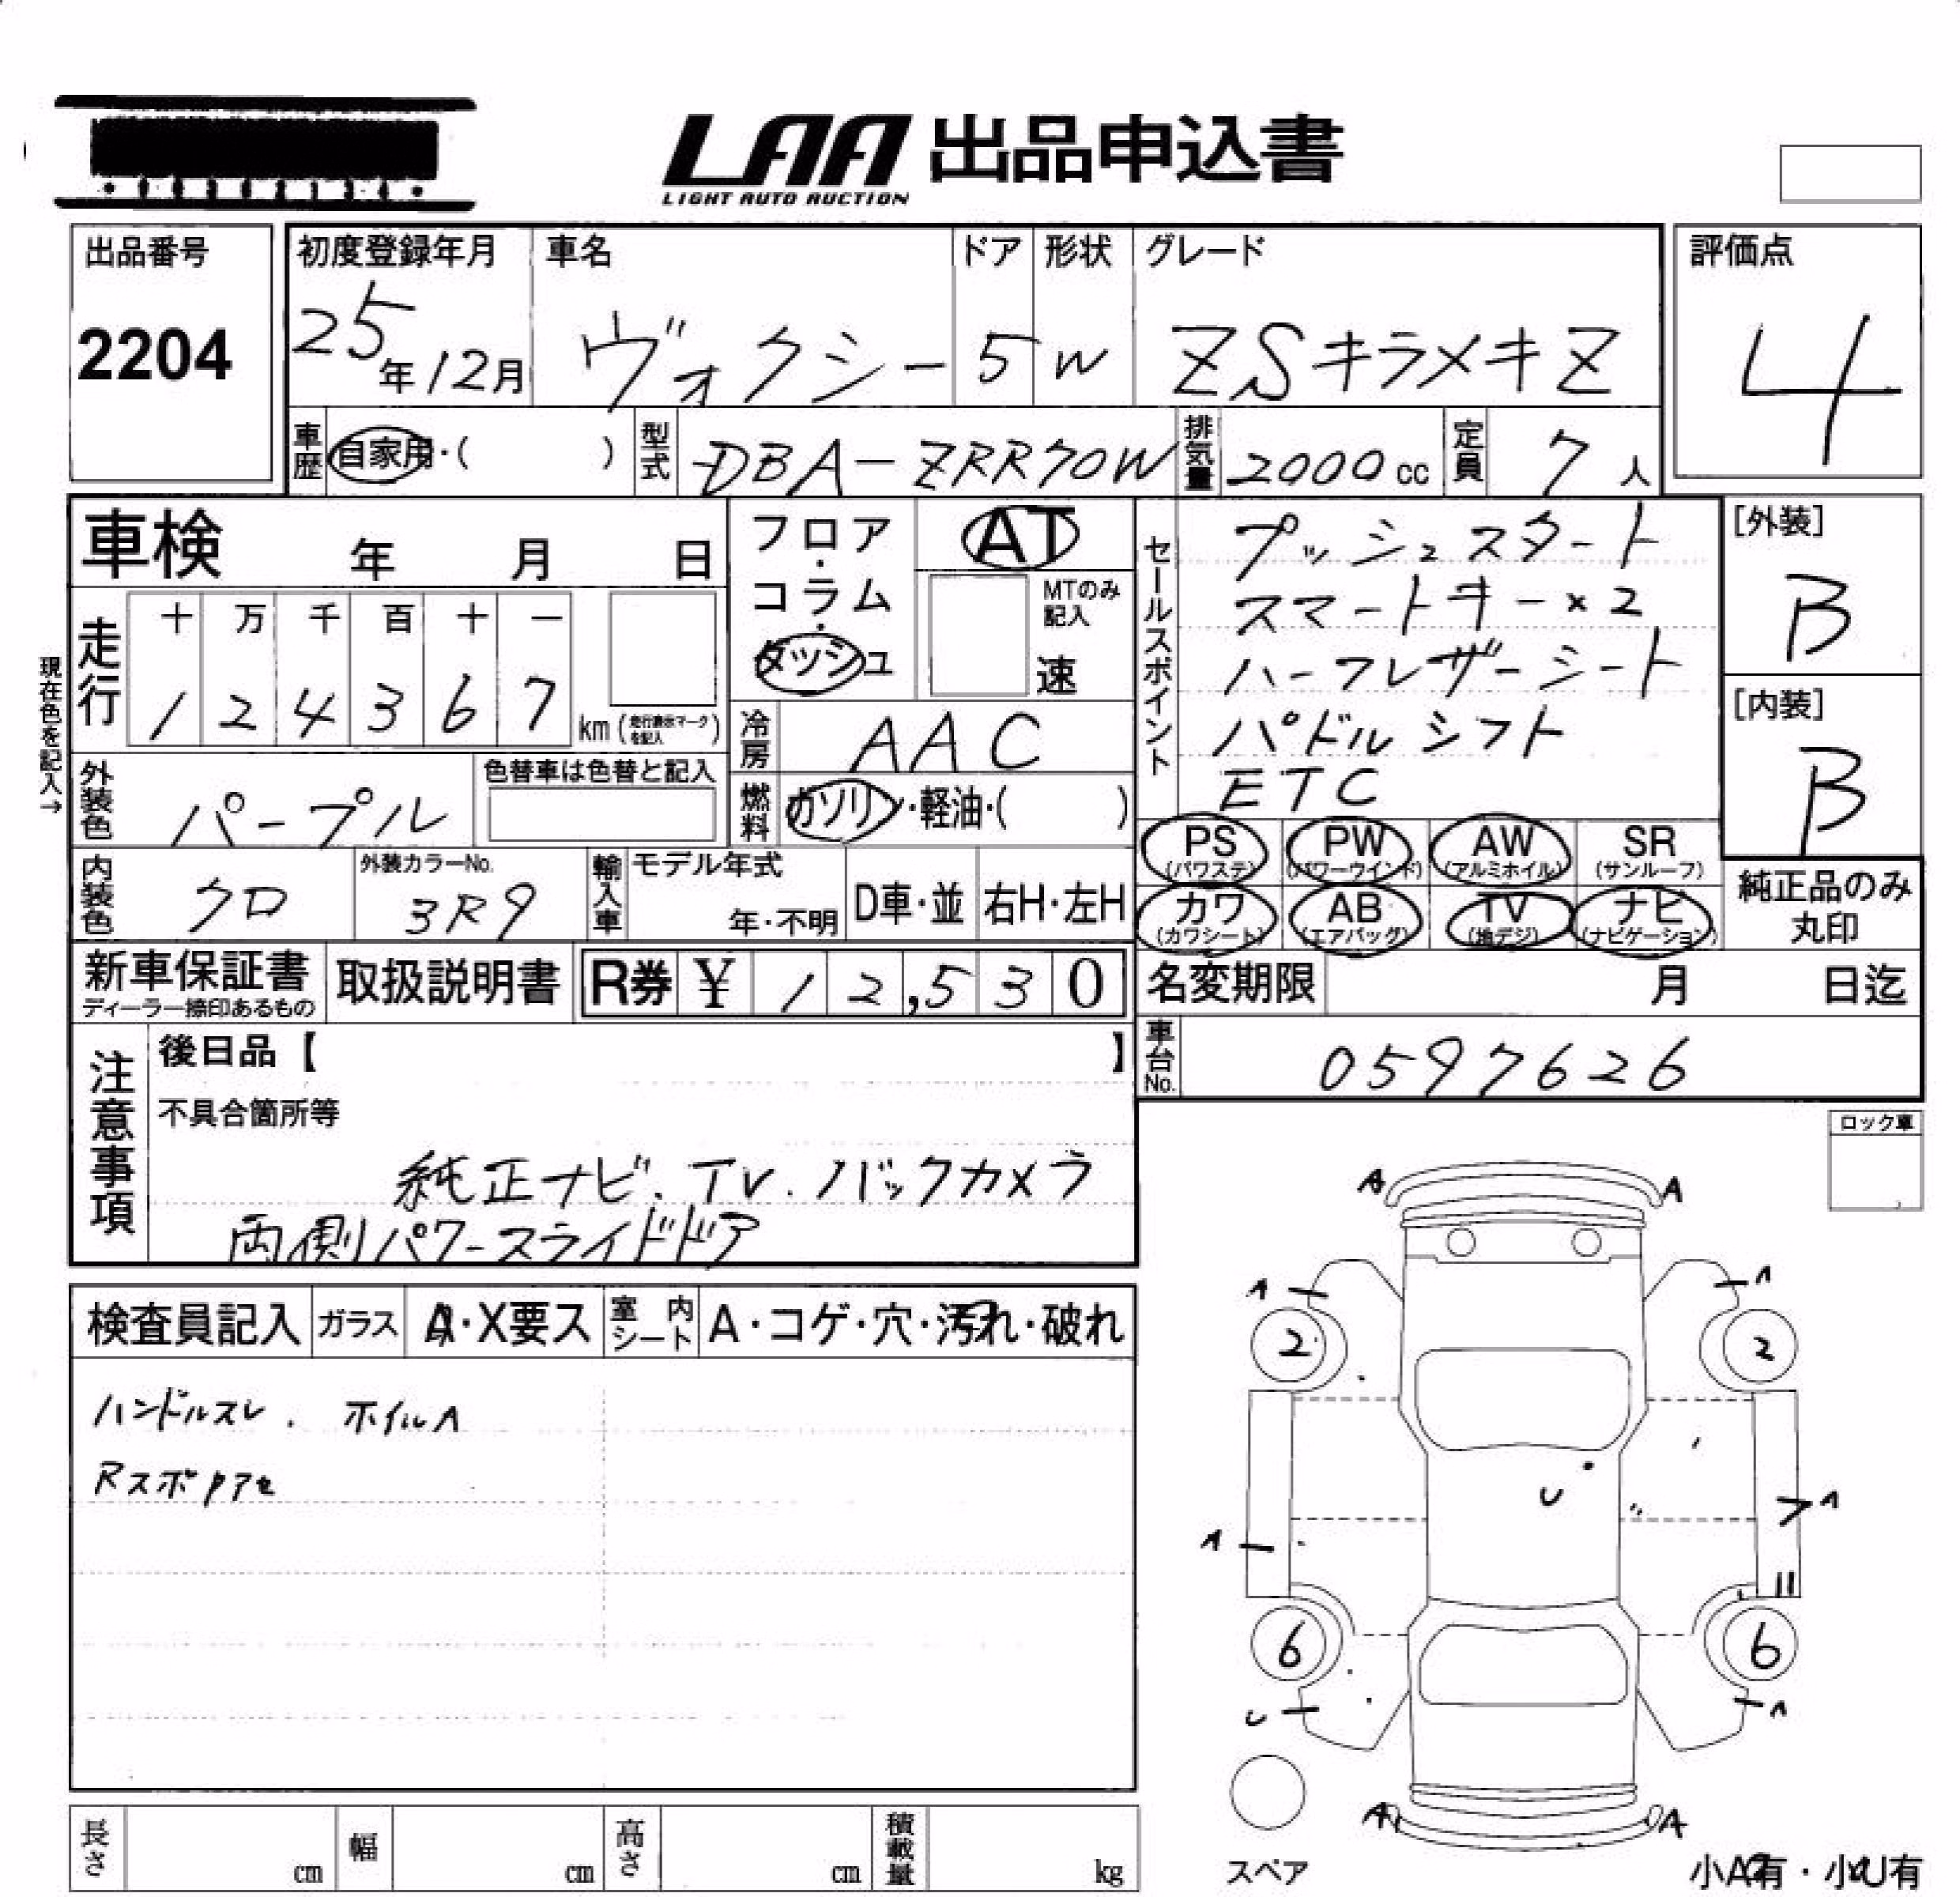 LAA 出品申込書
LIGHT AUTO AUCTION
出品番号
2204
初度登録年月
25年12月
車名
ヴォクシー
ドア
5
形状
W
グレード
ZSキラメキZ
評価点
4
車歴
自家用・( )
型式
DBA-ZRR70W
排気量
2000cc
定員
7人
車検 年 月 日
フロア・コラム・ダッシュ
AT
MTのみ記入
速
セールスポイント
プッシュスタート
スマートキー×2
ハーフレザーシート
パドルシフト
ETC
[外装]
B
[内装]
B
現在色を記入→
走行
十 万 千 百 十 一
1 2 4 3 6 7
km(走行表示マークを記入)
冷房
AAC
燃料
ガソリン・軽油・( )
外装色
パープル
色替車は色替と記入
内装色
クロ
外装カラーNo.
3R9
輸入車
モデル年式
年・不明
D車・並
右H・左H
PS (パワステ)
PW (パワーウインド)
AW (アルミホイル)
SR (サンルーフ)
カワ (カワシート)
AB (エアバッグ)
TV (地デジ)
ナビ (ナビゲーション)
純正品のみ丸印
新車保証書
ディーラー捺印あるもの
取扱説明書
R券 ¥ 12,530
名変期限 月 日迄
車台No.
0597626
注意事項
後日品【 】
不具合箇所等
純正ナビ.TV.バックカメラ
両側パワースライドドア
ロック車
検査員記入
ガラス
A・X要ス
室内シート
A・コゲ・穴・汚れ・破れ
ハンドルスレ. ホイルA
A A
A A
2 2
U
A A
6 6
U A
A A
スペア
長さ cm
幅 cm
高さ cm
積載量 kg